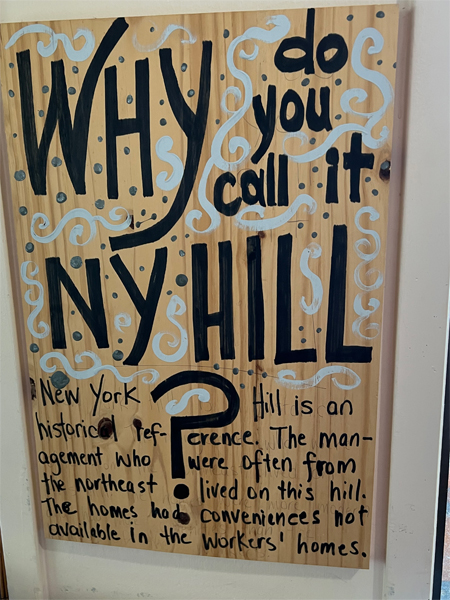 WHY do
you
call it
NY HILL
?
New York Hill is an
historical ref- erence. The man-
agement who were often from
the northeast lived on this hill.
The homes had conveniences not
available in the workers' homes.